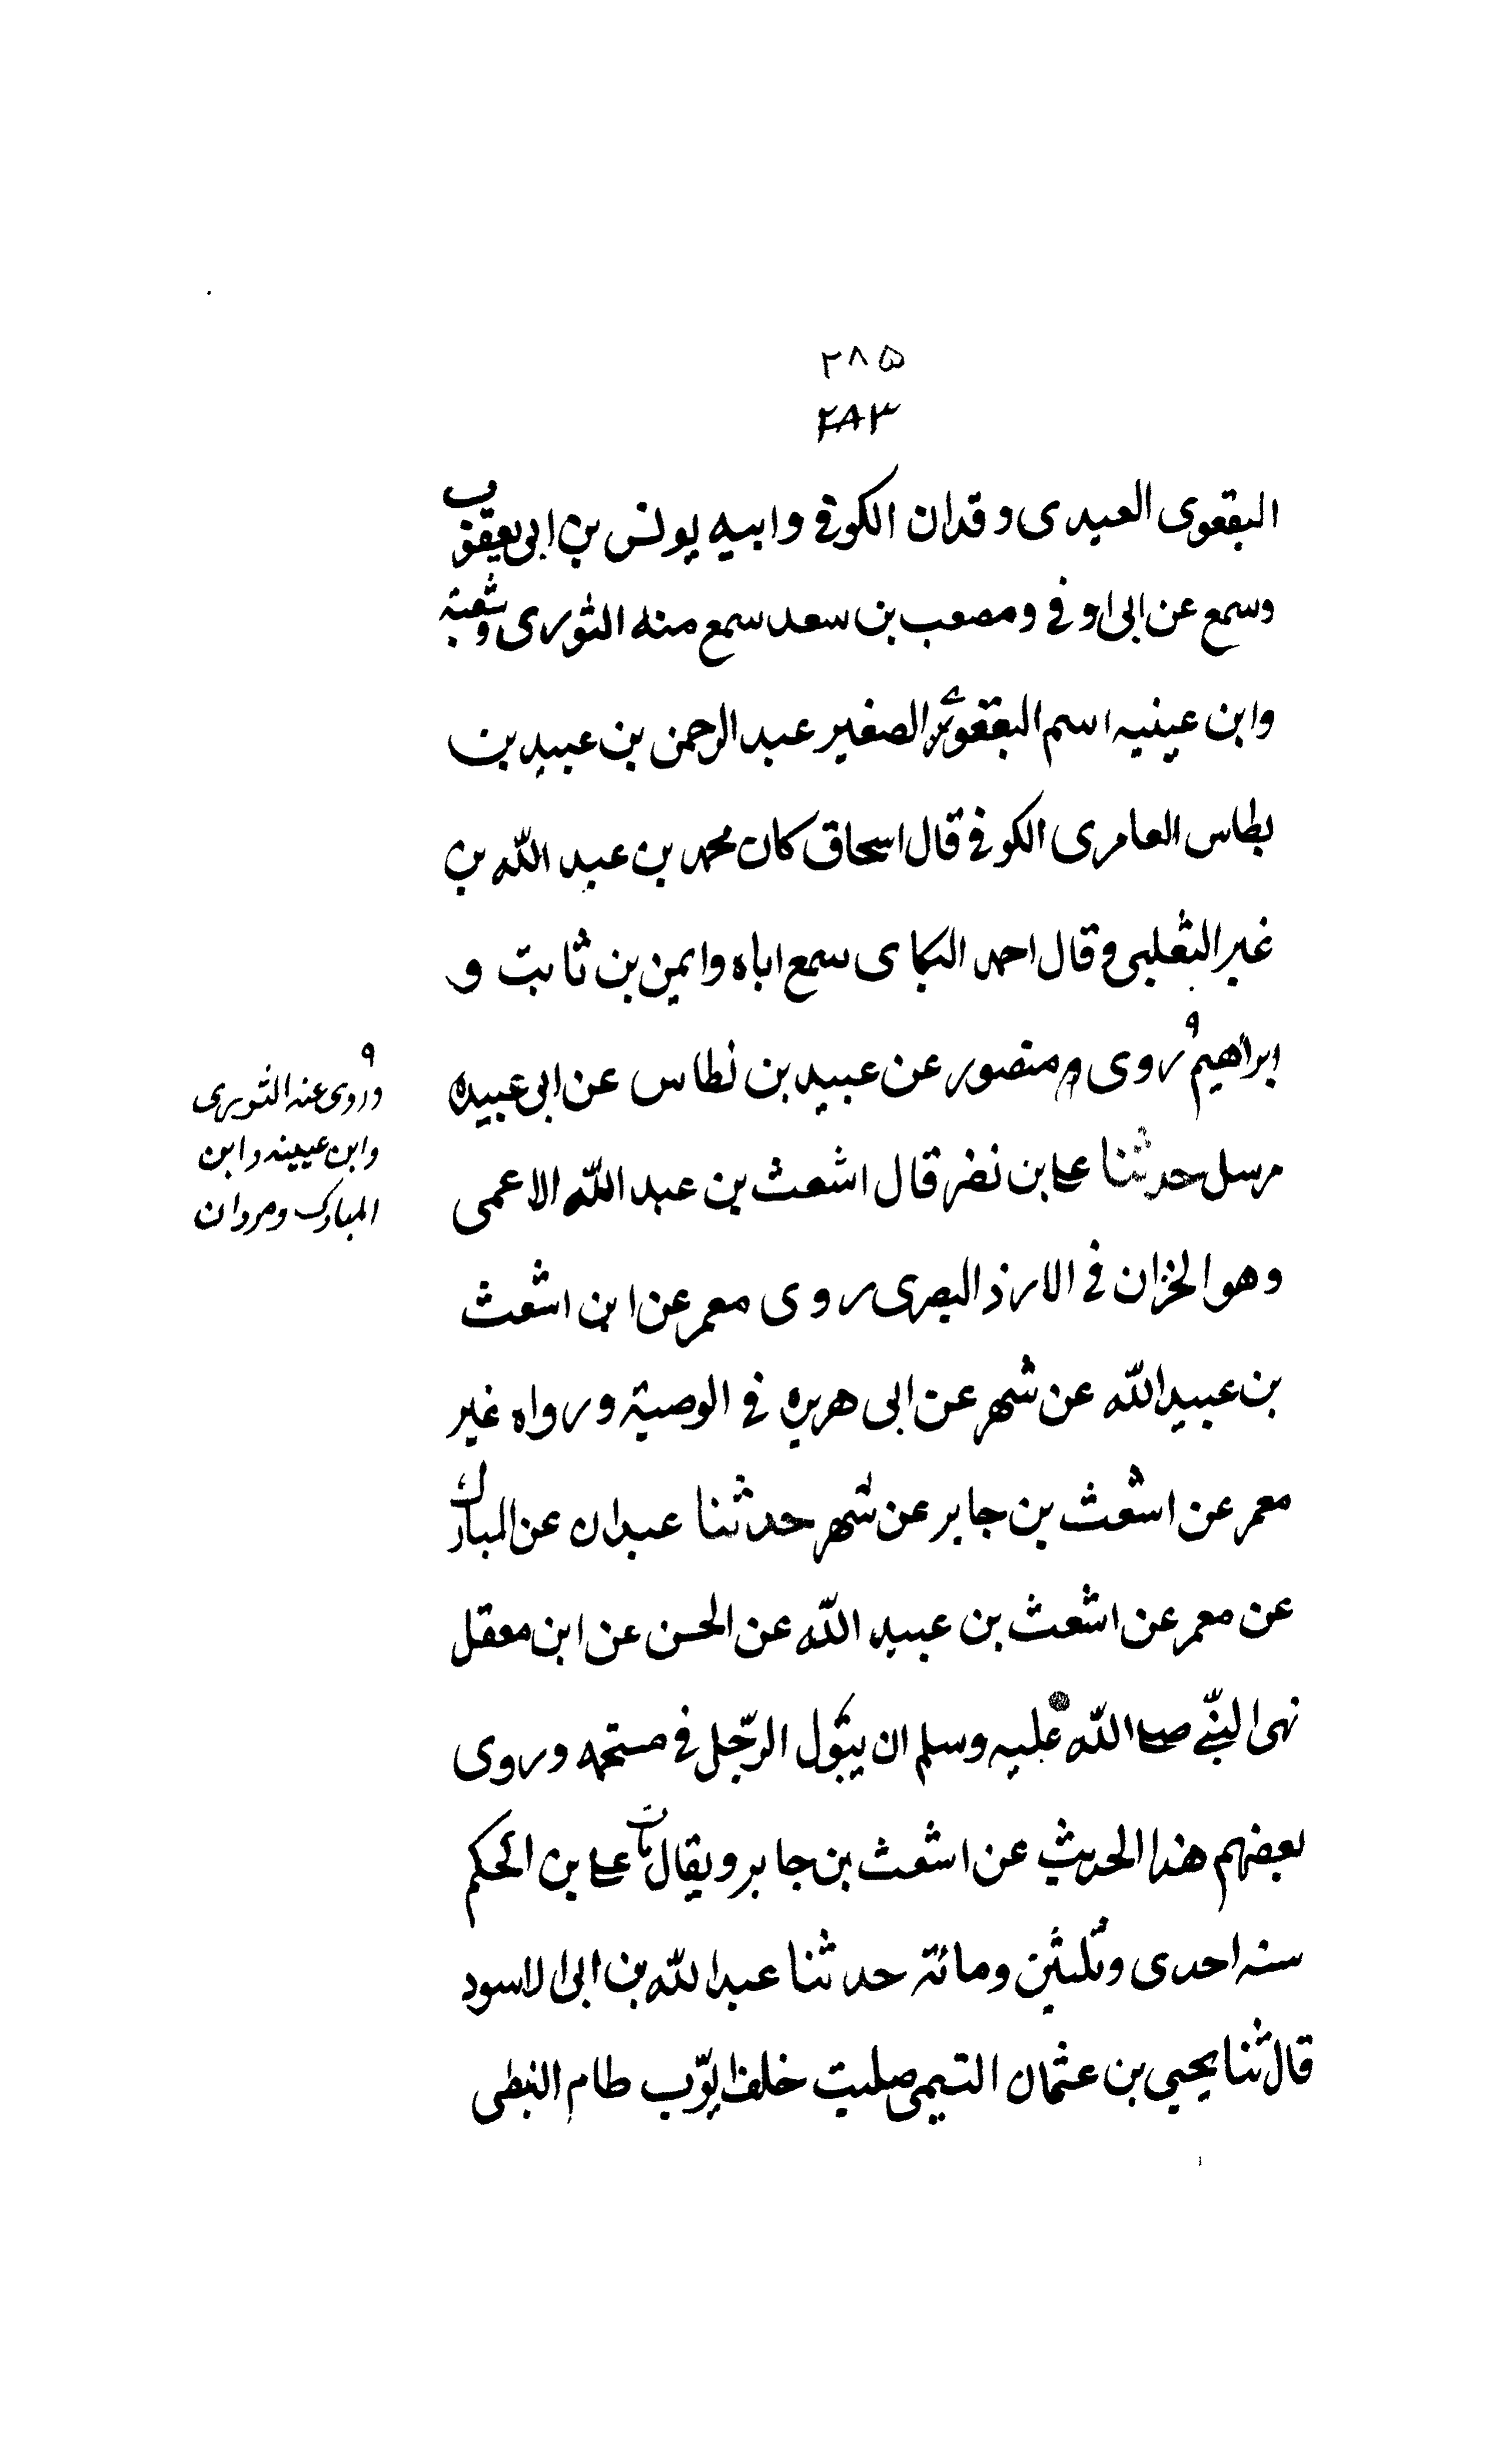 ۲۸۵
۲۸۳
البقعوى العبدى وقدان الكوفى وابيه يونس بن ابى يعقوب
وسمع عن ابى اوفى ومصعب بن سعد سمع منه الثورى وشعبة
وابن عينيه اسم البقعوى الصغير عبد الرحمن بن عبيد بن
بطاس العامرى الكوفى قال اسحاق كان محمد بن عبد الله بن
غير الثعلبى وقال احمد البكاى سمع اباه وايمن بن ثابت و
ابراهيم روى منصور عن عبيد بن نطاس عن ابى عبيده
مرسل حدثنا على بن نضر قال اشعث بن عبد الله الاعمى
وهو الخزان فى الارذ البصرى روى معمر عن ابن اشعث
بن عبيد الله عن شهر عن ابى هريره فى الوصية ورواه غير
معمر عن اشعث بن جابر عن شهر حدثنا عبدان عن المبارك
عن معمر عن اشعث بن عبيد الله عن الحسن عن ابن معقل
نهى النبى صلى الله عليه وسلم ان يبول الرجل فى مستحمه وروى
بعضهم هذا الحديث عن اشعث بن جابر ويقال مات على بن الحكم
سنة احدى وثلثين ومائة حدثنا عبد الله بن ابى الاسود
قال ثنا يحيى بن عثمان التيمى صليت خلف ايوب طام النبطى
۹
وروى عنه الثورى
وابن عيينه وابن
المبارك ومروان